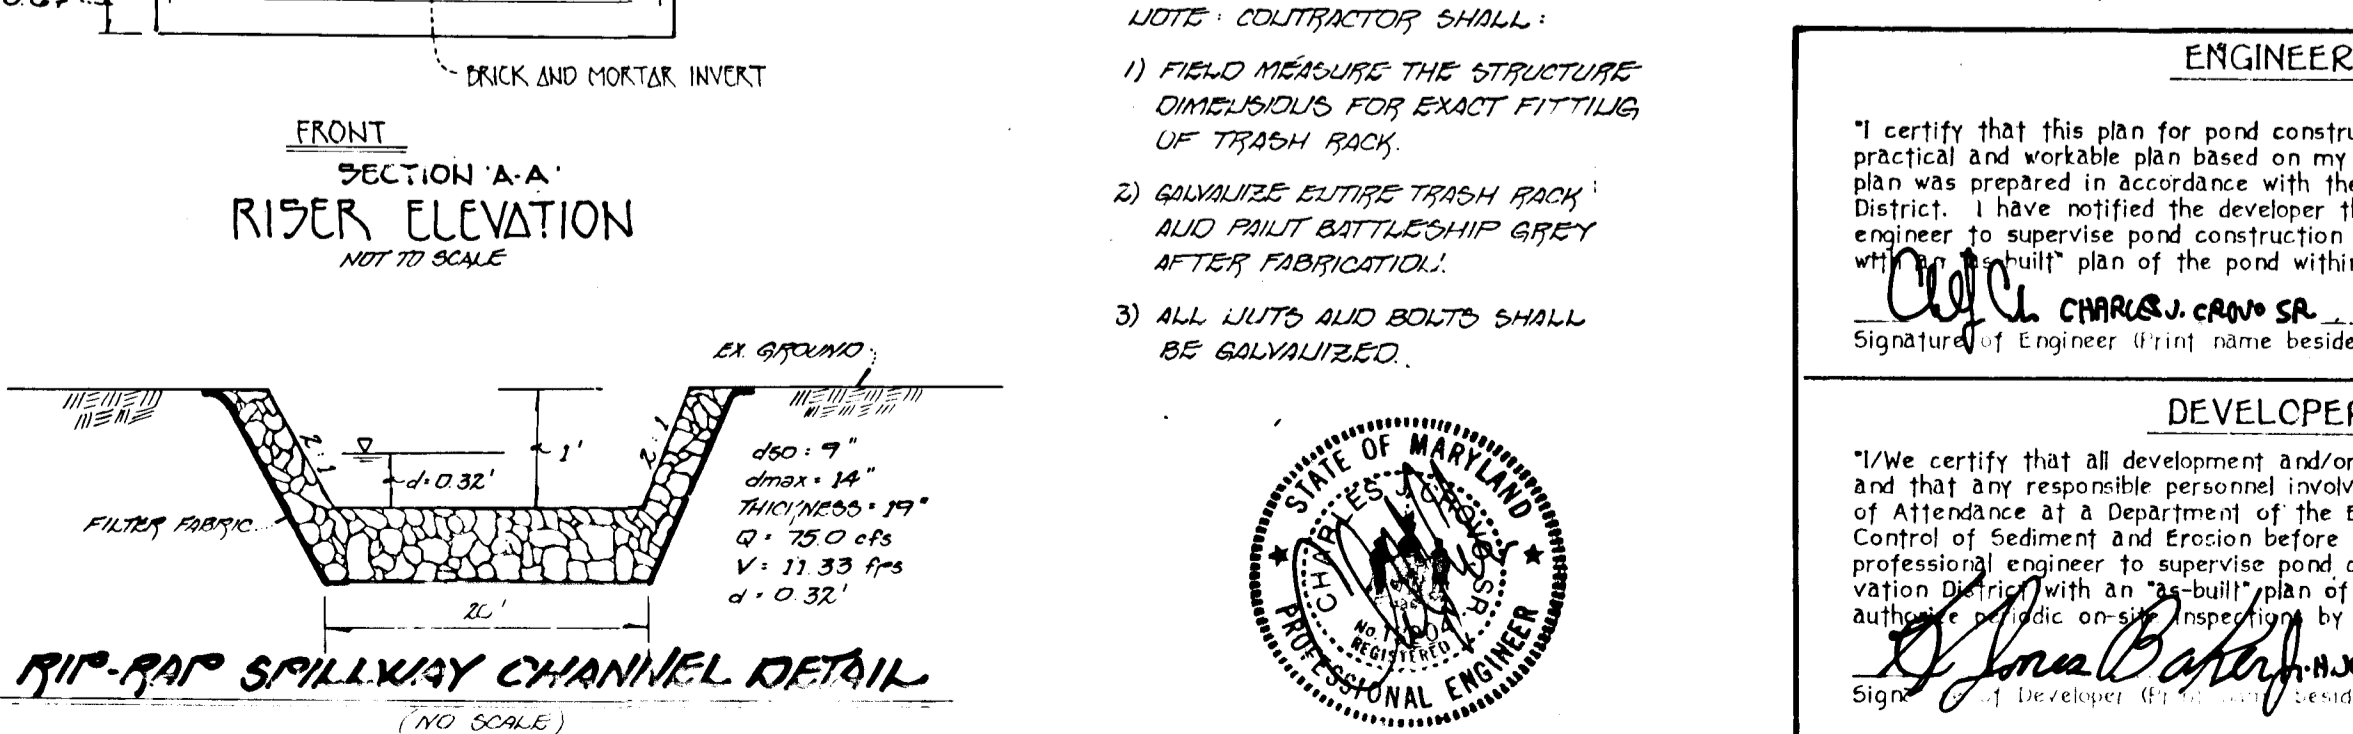 BRICK AND MORTAR INVERT
FRONT
SECTION 'A-A'
RISER ELEVATION
NOT TO SCALE
EX. GROUND
2:1
2:1
1'
d=0.32'
FILTER FABRIC
d50 = 9"
dmax = 14"
THICKNESS = 19"
Q = 75.0 cfs
V = 11.33 fps
d = 0.32'
20'
RIP-RAP SPILLWAY CHANNEL DETAIL
(NO SCALE)
NOTE: CONTRACTOR SHALL:
1) FIELD MEASURE THE STRUCTURE
DIMENSIONS FOR EXACT FITTING
OF TRASH RACK.
2) GALVANIZE ENTIRE TRASH RACK
AND PAINT BATTLESHIP GREY
AFTER FABRICATION.
3) ALL NUTS AND BOLTS SHALL
BE GALVANIZED.
STATE OF MARYLAND
CHARLES J. CROVO SR.
REGISTERED
PROFESSIONAL ENGINEER
ENGINEER
"I certify that this plan for pond constru
practical and workable plan based on my
plan was prepared in accordance with the
District. I have notified the developer th
engineer to supervise pond construction
with an "as-built" plan of the pond within
CHARLES J. CROVO SR.
Signature of Engineer (Print name beside
DEVELOPER
"I/We certify that all development and/or
and that any responsible personnel involv
of Attendance at a Department of the E
Control of Sediment and Erosion before
professional engineer to supervise pond c
vation District with an "as-built" plan of
authorize periodic on-site inspections by
Jones Baker Jr.
Developer